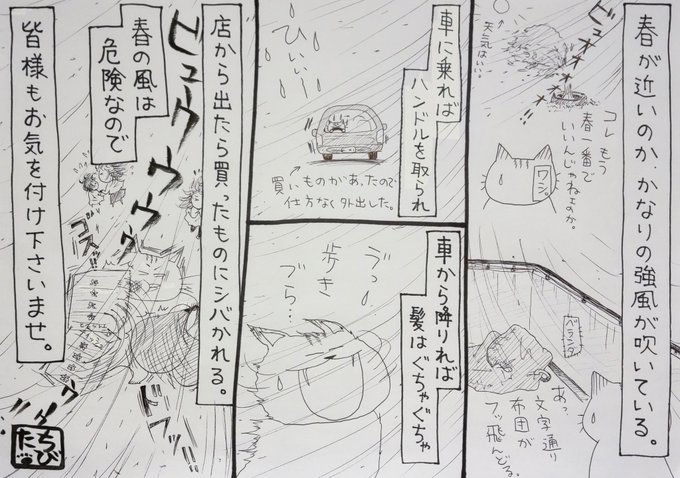 春が近いのか、かなりの強風が吹いている。
ビュオオオオ
天気はいい。
コレもう
春一番で
いいんじゃねぇのか。
ワシ
ベランダ
あっ
文字通り
布団が
フッ飛んどる。
車に乗れば
ハンドルを取られ
ひいぃ
買いものがあったので
仕方なく外出した。
車から降りれば
髪はぐちゃぐちゃ
うっ
歩き
づら…
店から出たら買ったものにシバかれる。
ビュウウウウウ
コスッ!!
ドフッ
春の風は
危険なので
皆様もお気を付け下さいませ。
ちび
た